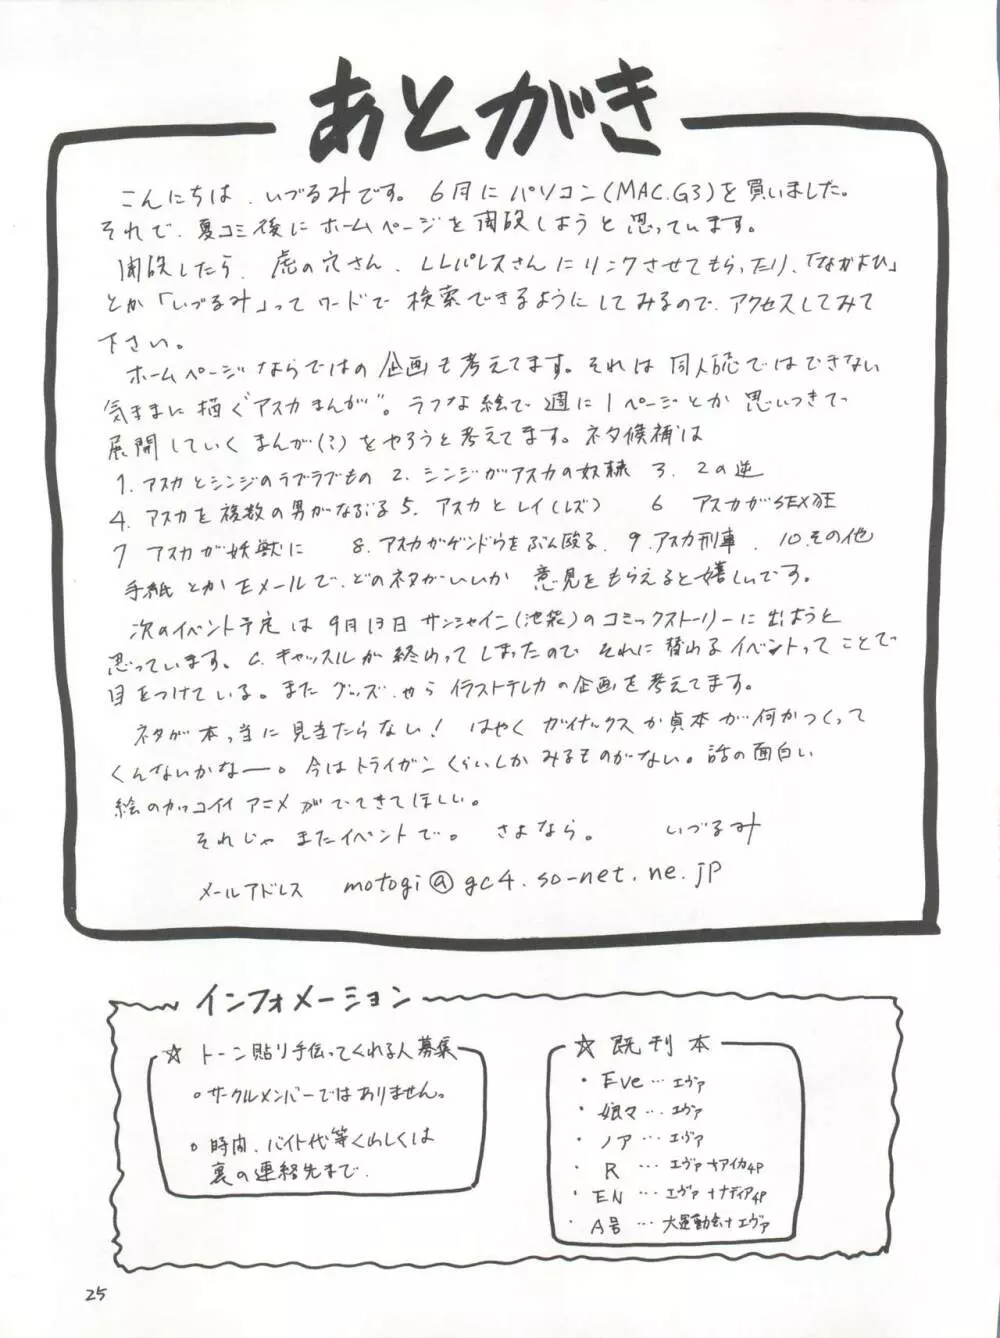 あとがき
こんにちは、いづるみです。6月にパソコン(MAC.G3)を買いました。
それで、夏コミ後にホームページを開設しようと思っています。
開設したら、虎の穴さん、LLパレスさんにリンクさせてもらったり、「なかよひ」
とか「いづるみ」ってワードで検索できるようにしてみるので、アクセスしてみて
下さい。
ホームページならではの企画も考えてます。それは同人誌ではできない
気ままに描く"アスカまんが"。ラフな絵で週に1ページとか思いつきで
展開していくまんが(?)をやろうと考えてます。ネタ候補は
1. アスカとシンジのラブラブもの 2. シンジがアスカの奴隷 3. 2の逆
4. アスカを複数の男がなぶる 5. アスカとレイ(レズ) 6 アスカがSEX狂
7 アスカが妖獣に 8. アスカがゲンドウをぶん殴る 9. アスカ刑事 10. その他
手紙とかEメールで、どのネタがいいか意見をもらえると嬉しいです。
次のイベント予定は9月13日サンシャイン(池袋)のコミックストーリーに出ようと
思っています。C.キャッスルが終わってしまったのでそれに替わるイベントってことで
目をつけている。またグッズやらイラストテレカの企画を考えてます。
ネタが本っ当に見当たらない! はやくガイナックスか貞本が何かつくって
くんないかなー。今はトライガンくらいしかみるものがない。話の面白い
絵のカッコイイアニメがでてきてほしい。
それじゃまたイベントで。さよなら。 いづるみ
メールアドレス motogi@gc4.so-net.ne.jp
インフォメーション
☆ トーン貼り手伝ってくれる人募集
○サークルメンバーではありません。
○時間、バイト代等くわしくは
裏の連絡先まで.
☆ 既刊本
・Eve…エヴァ
・娘々…エヴァ
・ノア…エヴァ
・R…エヴァ+アイカ4P
・EN…エヴァ+ナディア4P
・A号…大運動会+エヴァ
25